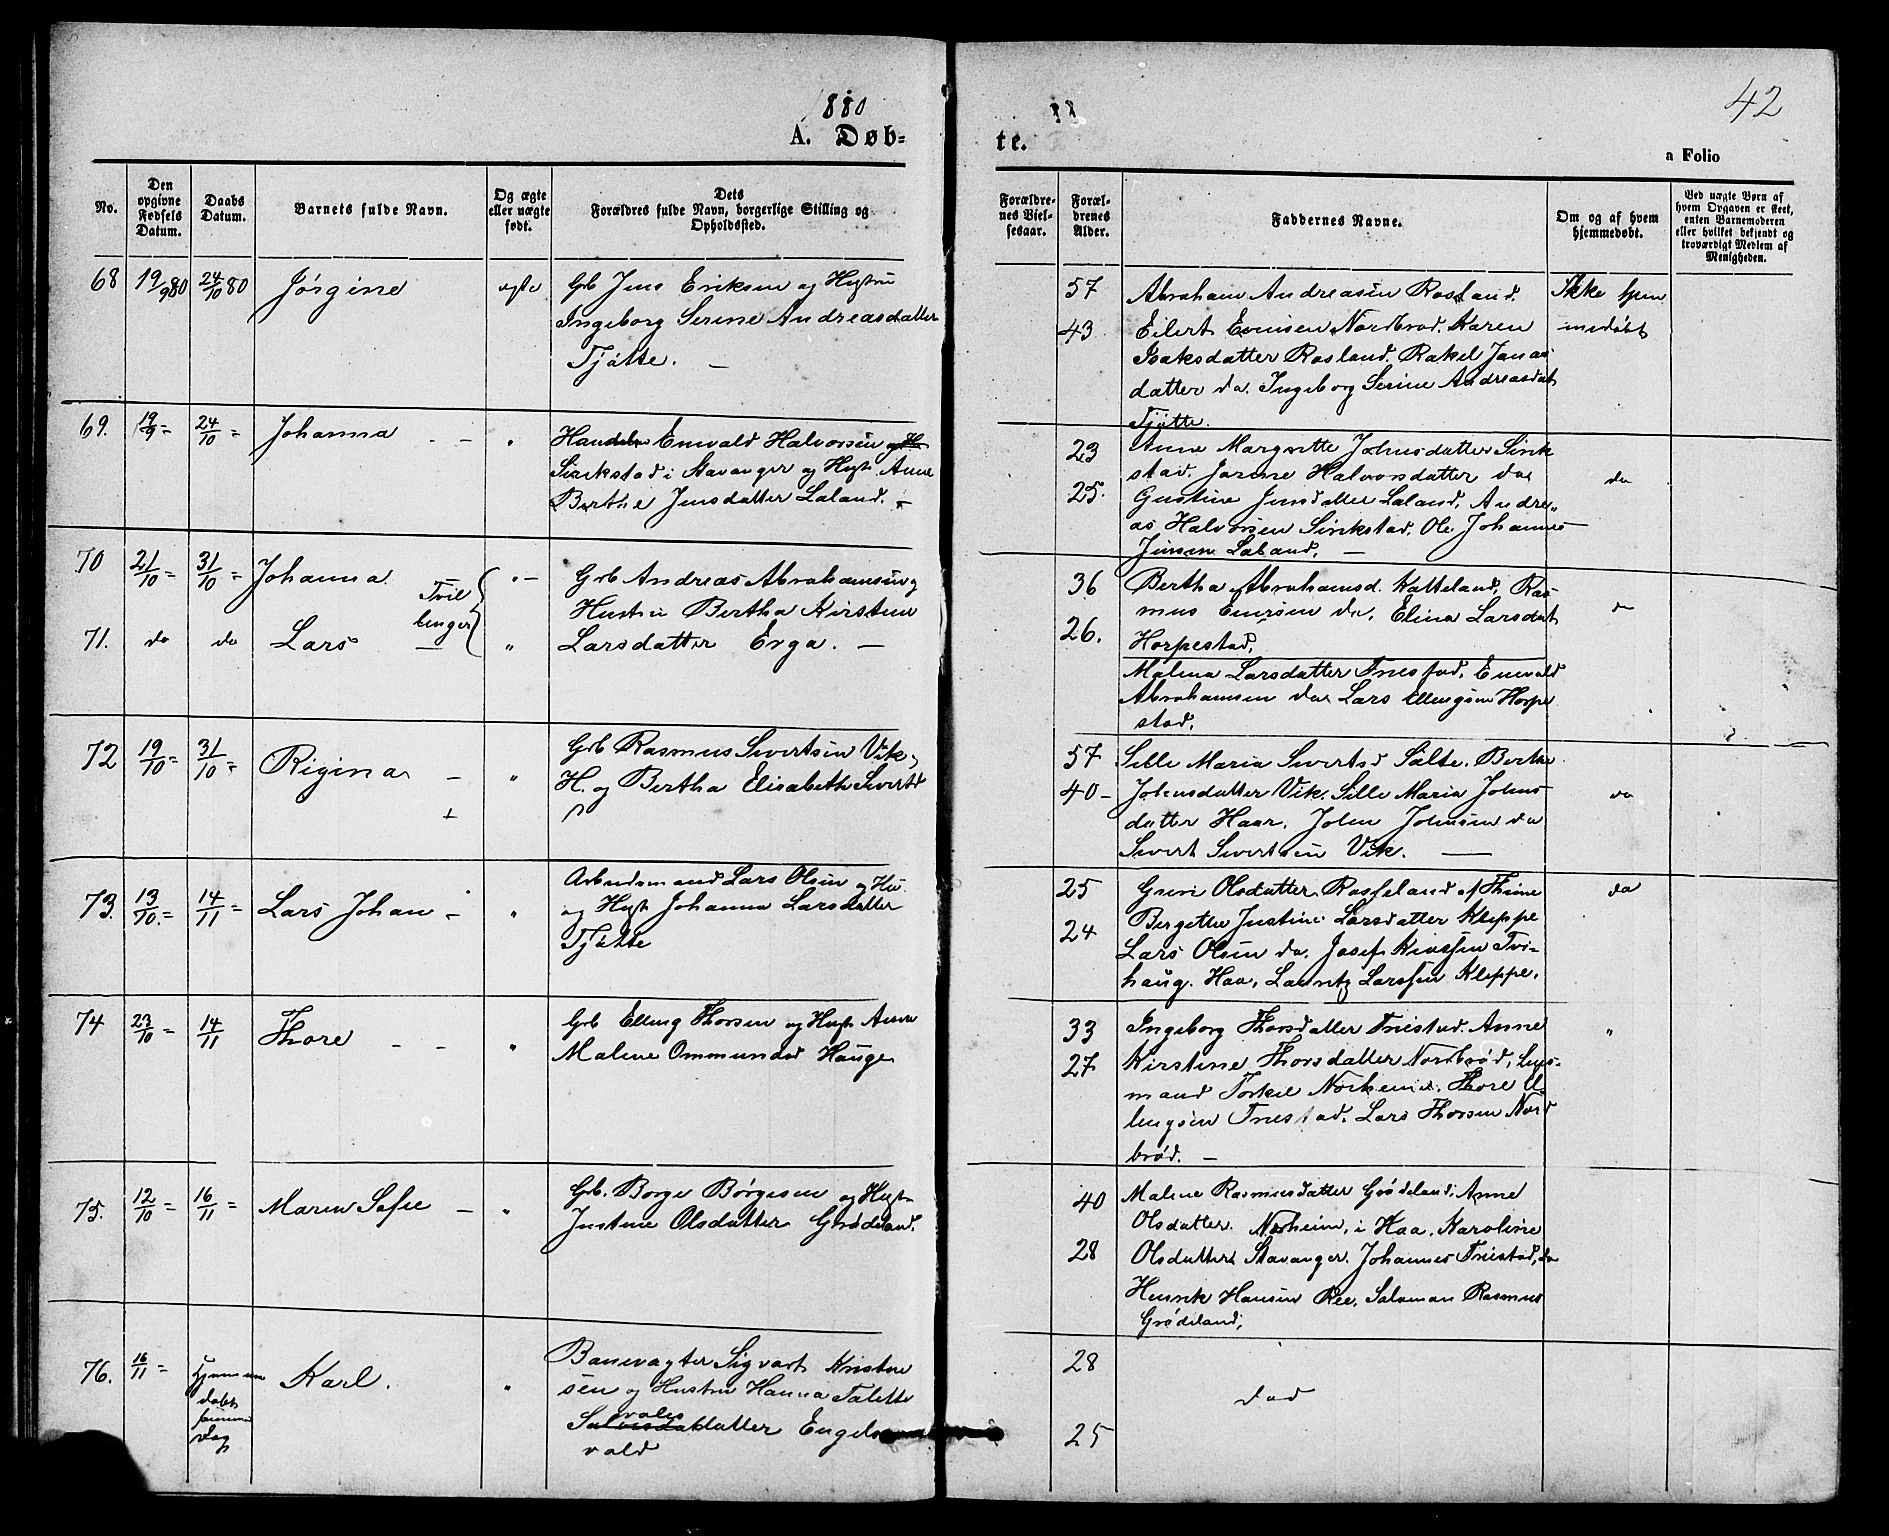 1880
42
A. Døb-
te.
a Folio
No.
Den opgivne Fødsels Datum.
Daabs Datum.
Barnets fulde Navn.
Og ægte eller uægte født.
Dets Forældres fulde Navn, borgerlige Stilling og Opholdssted.
Forældrenes Vielsesaar.
Forældrenes Alder.
Faddernes Navne.
Om og af hvem hjemmedøbt.
Ved uægte Børn af hvem Opgaven er skeet, enten Barnemoderen eller hvilket bekjendt og troværdigt Medlem af Menigheden.
68 19/9 80 24/10 80 Jørgine ægte
Grb Jens Eriksen og Hustru
Ingeborg Serine Andreasdatter
Tjøtte. —
57 43
Abraham Andreasen Rosland.
Eilert Nordbrød. Karen
Isaksdatter Rosland. Rakel Jonas
datter do. Ingeborg Serine Andreasdat
Tjøtte.
Ikke hjem
medøbt
69. 19/9 = 24/10 = Johanna - - "
Enevald Halvorsen
Sirekstad i Stavanger og Hust. Anne
Berthe Jensdatter Laland. -
23 25.
Anne Margrette Johnsdatter Sirek
stad. Halvorsdatter do
Gustine Jensdatter Laland, Andre-
as Halvorsen Sirekstad. Ole Johannes
Jensen Laland. —
do
70 21/10 = 31/10 = Johanna Tvil "-
71. do do Lars linger "
Grb Andreas Abrahamsen og
Hustru Bertha Kirstine
Larsdatter Erga. —
36 26.
Bertha Abrahamsd. Katteland, Ras
mus do, Elina Larsdat
Horpestad.
Malena Larsdatter Friestad, Enevald
Abrahamsen do Lars Ellingsen Horpe
stad.
do
72 19/10 = 31/10 = Rigina - "
+
Grb Rasmus Sivertsen Vik
H. og Bertha Elisabeth Sivertsd
57 40-
Sille Maria Sivertsd Salte. Berthe
Johnsdatter Vik. Sille Maria Johns
datter Haar. John Johnsen do
Sivert Sivertsen Vik. —
do
73. 13/10 = 14/11 = Lars Johan - "
Arbeidsmand Lars Olsen og Hu
og Hust Johanna Larsdatter
Tjøtte
25 24
Guri Olsdatter Rosseland af Thime
Bergitte Justine Larsdatter Kleppe
Lars Olsen do. Josef Tvi-
haug. Haa, Lauritz Larssen Kleppe.
do
74 23/10 = 14/11 Thore - - "
Grb Elling Thorsen og Hust Anne
Malene Ommundsd Hauge
33 27
Ingeborg Thorsdatter Friestad. Anne
Kirstine Thorsdatter Nordbrød, Lens-
mand Torkel Norheim. Thore El
lingsen Friestad. Lars Thorsen Nord
brød. —
"
75. 12/10 = 16/11 = Maren Sofie - "
Grb. Børge Børgesen og Hust
Justine Olsdatter Grødeland.
40 28
Malene Rasmusdatter Grødeland, Anne
Olsdatter. Norheim, i Haa. Karoline
Olsdatter Stavanger. Johannes Friestad, do
Henrik Hansen Ree. Salomon Rasmus
Grødeland.
76. 16/11 = Hjemme
døbt
samme
Dag
Karl. "
Banevagter Sigvart Kristen
sen og Hustru Hanna Talette
datter Engels
vold
28 25
død